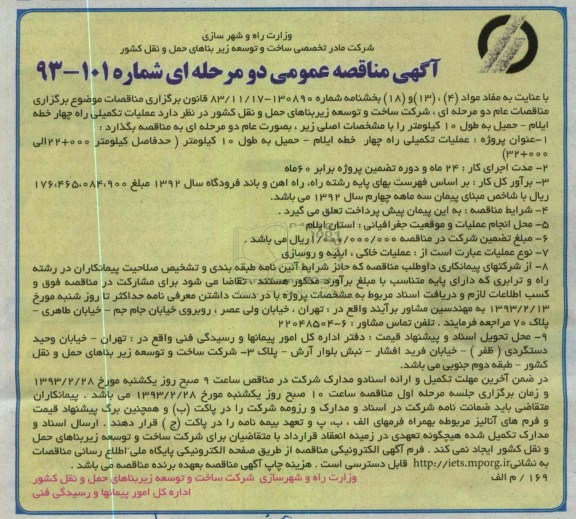 وزارت راه و شهر سازی
شرکت مادر تخصصی ساخت و توسعه زیر بناهای حمل و نقل کشور
آگهی مناقصه عمومی دو مرحله ای شماره ۱۰۱-۹۳
با عنایت به مفاد مواد (۴) ، (۱۳)و (۱۸) بخشنامه شماره ۱۳۰۸۹۰-۸۳/۱۱/۱۷ قانون برگزاری مناقصات موضوع برگزاری
مناقصات عام دو مرحله ای ، شرکت ساخت و توسعه زیربناهای حمل و نقل کشور در نظر دارد عملیات تکمیلی راه چهار خطه
ایلام - حمیل به طول ۱۰ کیلومتر را با مشخصات اصلی زیر ، بصورت عام دو مرحله ای به مناقصه بگذارد :
۱-عنوان پروژه : عملیات تکمیلی راه چهار خطه ایلام - حمیل به طول ۱۰ کیلومتر ( حدفاصل کیلومتر ۰۰۰+۲۲الی
۰۰۰+۳۲)
۲- مدت اجرای کار : ۲۴ ماه و دوره تضمین پروژه برابر ۶۰ماه
۳- برآور کل کار : بر اساس فهرست بهای پایه رشته راه، راه اهن و باند فرودگاه سال ۱۳۹۲ مبلغ ۱۷۶،۴۶۵،۰۸۴،۹۰۰
ریال با شاخص مبنای پیمان سه ماهه چهارم سال ۱۳۹۲ می باشد.
۴- شرایط مناقصه : به این پیمان پیش پرداخت تعلق می گیرد .
۵- محل انجام عملیات و موقعیت جغرافیانی : استان ایلام
۶- مبلغ تضمین شرکت در مناقصه ۱/۰۰۰/۰۰۰/۰۰۰ریال می باشد .
۷- نوع عملیات عبارت است از : عملیات خاکی ، ابنیه و روسازی
۸- از شرکتهای پیمانکاری داوطلب مناقصه که حائز شرایط آئین نامه طبقه بندی و تشخیص صلاحیت پیمانکاران در رشته
راه و ترابری که دارای پایه متناسب با مبلغ برآورد مذکور هستند ، تقاضا می شود برای مشارکت در مناقصه فوق و
کسب اطلاعات لازم و دریافت اسناد مربوط به مشخصات پروژه با در دست داشتن معرفی نامه حداکثر تا روز شنبه مورخ
۱۳۹۳/۲/۱۳ به مهندسین مشاور برآیند واقع در : تهران ، خیابان ولی عصر ، روبروی خیابان جام جم - خیابان طاهری -
پلاک ۷۰ مراجعه فرمایند . تلفن تماس مشاور : ۶-۲۲۰۴۸۵۰۴
۹- محل تحویل اسناد و پیشنهاد قیمت : دفتر اداره کل امور پیمانها و رسیدگی فنی واقع در : تهران - خیابان وحید
دستگردی ( ظفر ) - خیابان فرید افشار - نبش بلوار آرش - پلاک ۳- شرکت ساخت و توسعه زیر بناهای حمل و نقل
کشور - طبقه دوم جنوبی می باشد.
در ضمن آخرین مهلت تکمیل و ارائه اسنادو مدارک شرکت در مناقص ساعت ۹ صبح روز یکشنبه مورخ ۱۳۹۳/۲/۲۸
و زمان برگزاری جلسه مرحله اول مناقصه ساعت ۱۰ صبح روز یکشنبه مورخ ۱۳۹۳/۲/۲۸ می باشد . پیمانکاران
متقاضی باید ضمانت نامه شرکت در اسناد و مدارک و رزومه شرکت را در پاکت (ب) و همچنین برگ پیشنهاد قیمت
و فرم های آنالیز مربوطه بهمراه فرمهای الف ، ب، پ و تعهد بیمه نامه را در پاکت (ج ) قرار دهند . ارسال اسناد و
مدارک تکمیل شده هیچگونه تعهدی در زمینه انعقاد قرارداد با متقاضیان برای شرکت ساخت و توسعه زیربناهای حمل
و نقل کشور ایجاد نمی کند . فرم آگهی الکترونیکی مناقصه از طریق صفحه الکترونیکی پایگاه ملی اطلاع رسانی مناقصات
به نشانیhttp://iets.mporg.ir قابل دسترسی است . هزینه چاپ آگهی مناقصه بعهده برنده مناقصه می باشد .
۱۶۹ / م الف
وزارت راه و شهرسازی شرکت ساخت و توسعه زیربناهای حمل و نقل کشور
اداره کل امور پیمانها و رسیدگی فنی